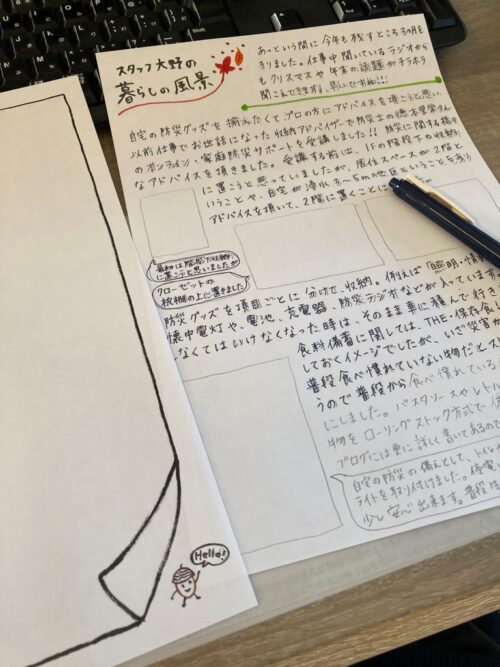 スタッフ大野の
暮らしの風景
あっという間に今年も残すところ3ヶ月を
きりました。仕事中聞いているラジオから
もクリスマスや年末の話題がチラホラ
聞こえてきます。
自宅の防災グッズを揃えたくて、プロの方にアドバイスを頂こうと思い
以前仕事でお世話になった収納アドバイザーで防災士の徳本里栄さん
のオンライン、家庭防災サポートを受講しました!! 防災に関する様々
なアドバイスを頂きました。受講する前は、1Fの階段下の収納
に置こうと思っていましたが、居住スペースが2階と
いうことや、自宅が津波3〜5mの地区ということもあり
アドバイスを頂いて、2階に置くことに
最初は階段下収納
に置こうと思いましたが
クローゼットの
枕棚の上に置きました
防災グッズを項目ごとに分けて、収納。例えば「照明・情報
懐中電灯や、電池、充電器、防災ラジオなどが入っています
なくてはいけなくなった時は、そのまま車に積んで行き
食料備蓄に関しては、THE・保存食
しておくイメージでしたが、いざ災害
普段食べ慣れていない物だとス
うので普段から食べ慣れている
にしました。パスタソースやレト
物をローリングストック方式で
ブログには更に詳しく書いてあるので
自宅の防災の備えとして、トイレ
ライトを取り付けました。停電
少し安心出来ます。普段
Hello!